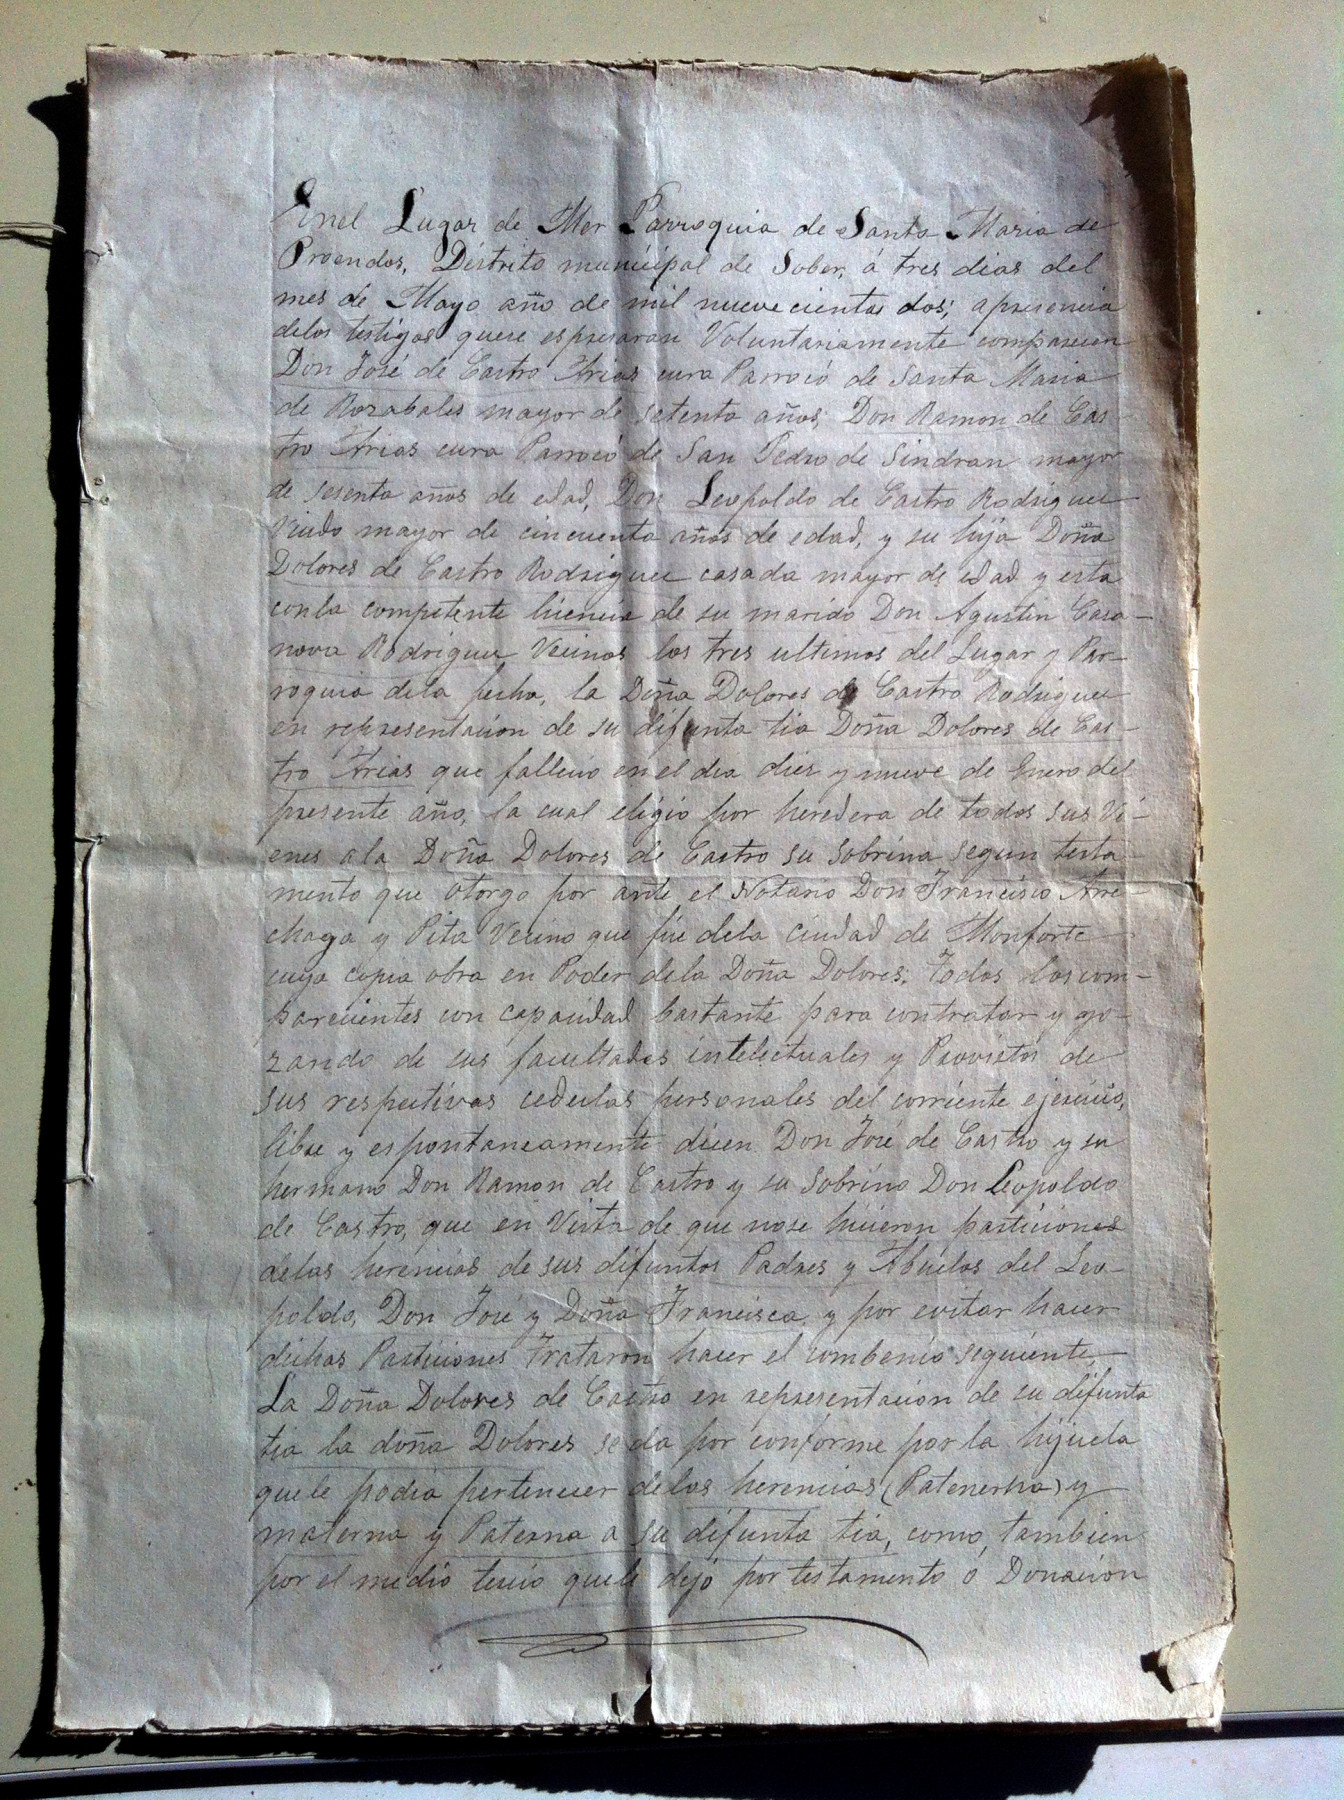 Enel Lugar de Mer Parroquia de Santa Maria de
Proendos, Distrito municipal de Sober, á tres dias del
mes de Mayo año de mil nuevecientos dos; apresencia
delos testigos quese espresaran Voluntariamente comparecen
Don José de Castro Arias cura Parrocó de Santa Maria
de Rozabales mayor de setenta años, Don Ramon de Cas-
tro Arias cura Parrocó de San Pedro de Sindran mayor
de sesenta años de edad, Don Leopoldo de Castro Rodriguez
Viudo mayor de cincuenta años de edad, y su hija Doña
Dolores de Castro Rodriguez casada mayor de edad y esta
conla competente licencia de su marido Don Agustin Casa-
nova Rodriguez Vecinos los tres ultimos del Lugar y Par-
roquia dela fecha, la Doña Dolores de Castro Rodriguez
en representacion de su difunta tia Doña Dolores de Cas-
tro Arias que fallecio en el dia dies y nueve de Enero del
presente año, la cual eligio por heredera de todos sus Vi-
enes a la Doña Dolores de Castro su sobrina segun testa-
mento que otorgo por ante el Notario Don Francisco Arre-
chaga y Pita Vecino que fue dela ciudad de Monforte
cuya copia obra en Poder de la Doña Dolores; Todos los com-
parecientes con capacidad bastante para contratar y go-
zando de sus facultades intelectuales y Provistos de
sus respectivas cedulas personales del corriente ejercicio,
libre y espontaneamente dicen Don José de Castro y su
hermano Don Ramon de Castro y su Sobrino Don Leopoldo
de Castro, que en Vista de que nose hicieron particiones
delas herencias de sus difuntos Padres y Abuelos del Leo-
poldo, Don José y Doña Francisca, y por evitar hacer
dichas Particiones Trataron hacer el combenio seguiente,
La Doña Dolores de Castro en representacion de su difunta
tia la doña Dolores se da por conforme por la hijuela
quele podia pertenecer delas herencias (Paterna) y
materna y Paterna a su difunta tia, como, tambien
por el medio tercio quele dejó por testamento ó Donacion